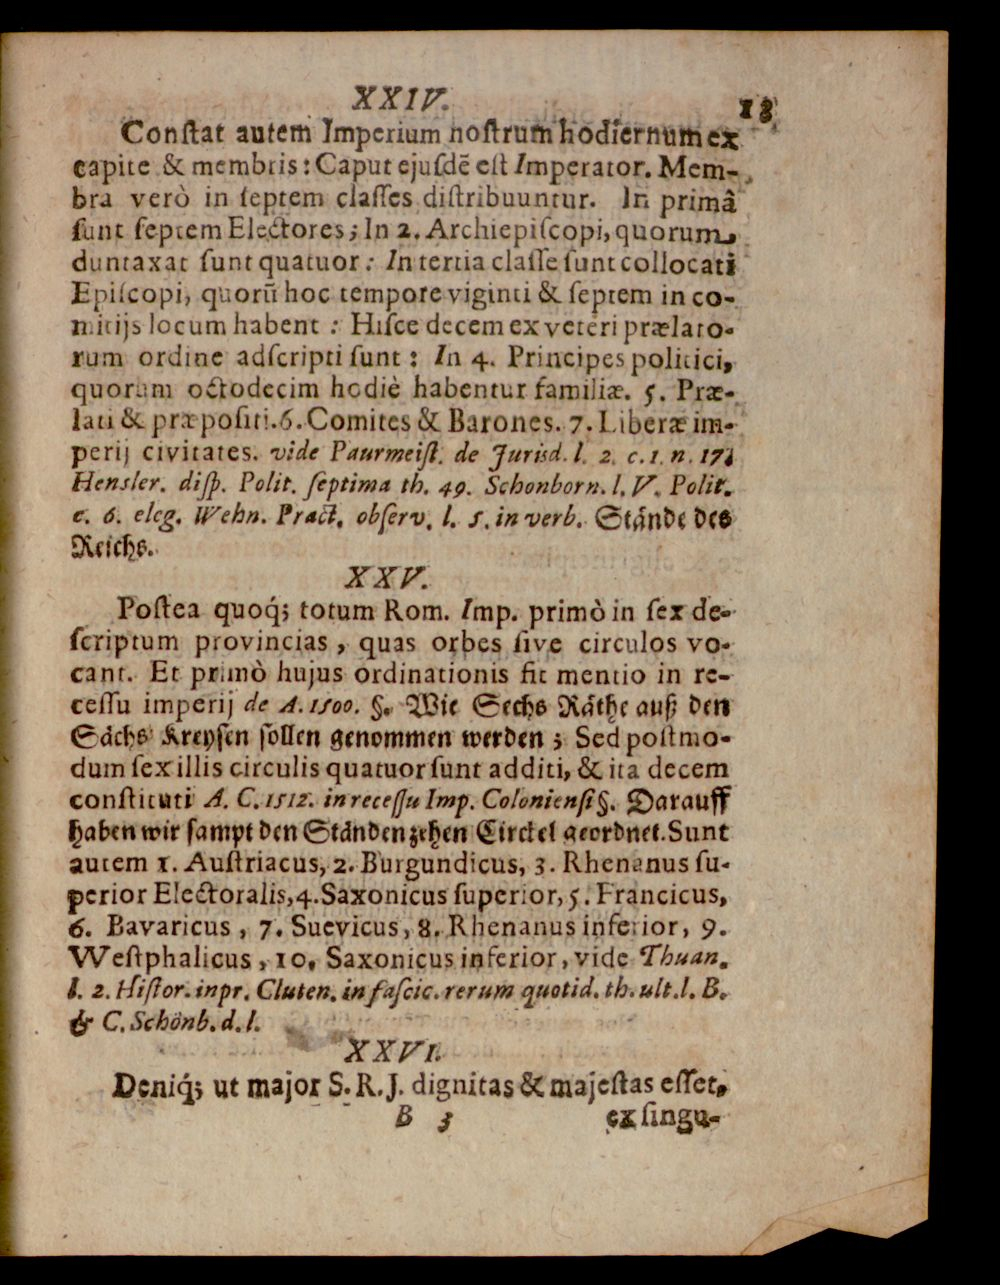 XXIV.
13
Conſtat autem Imperium noſtrum hodiernum ex
capite & membris: Caput ejuſdē eſt Imperator. Mem-
bra verò in ſeptem claſſes diſtribuuntur. In primâ
ſunt ſeptem Electores; In 2. Archiepiſcopi, quorum
duntaxat ſunt quatuor: In tertia claſſe ſunt collocati
Epiſcopi, quorū hoc tempore viginti & ſeptem in co-
mitijs locum habent: Hiſce decem ex veteri prælato-
rum ordine adſcripti ſunt: In 4. Principes politici,
quorum octodecim hodiè habentur familiæ. 5. Præ-
lati & præpoſiti. 6. Comites & Barones. 7. Liberæ im-
perij civitates. vide Paurmeiſt. de Jurisd. l. 2. c. 1. n. 17.
Hensler. diſp. Polit. ſeptima th. 49. Schonborn. l. V. Polit.
c. 6. eleg. Wehn. Pract. obſerv. l. S. in verb. Stände des
Reichs.
XXV.
Poſtea quoq́; totum Rom. Imp. primò in ſex de-
ſcriptum provincias, quas orbes ſive circulos vo-
cant. Et primò hujus ordinationis fit mentio in re-
ceſſu imperij de A. 1500. §. Wie Sechs Räthe auß den
Sächs Kreyſen ſollen genommen werden; Sed poſtmo-
dum ſex illis circulis quatuor ſunt additi, & ita decem
conſtituti A. C. 1512. in receſſu Imp. Colonienſi §. Darauff
haben wir ſampt den Ständen zehen Circkel geordnet. Sunt
autem 1. Auſtriacus, 2. Burgundicus, 3. Rhenanus ſu-
perior Electoralis, 4. Saxonicus ſuperior, 5. Francicus,
6. Bavaricus, 7. Suevicus, 8. Rhenanus inferior, 9.
Weſtphalicus, 10. Saxonicus inferior, vide Thuan.
l. 2. Hiſtor. in pr. Cluten. in faſcic. rerum quotid. th. ult. l. B.
& C. Schönb. d. l.
XXVI.
Deniq́; ut major S. R. J. dignitas & majeſtas eſſet,
B 3 ex ſingu-